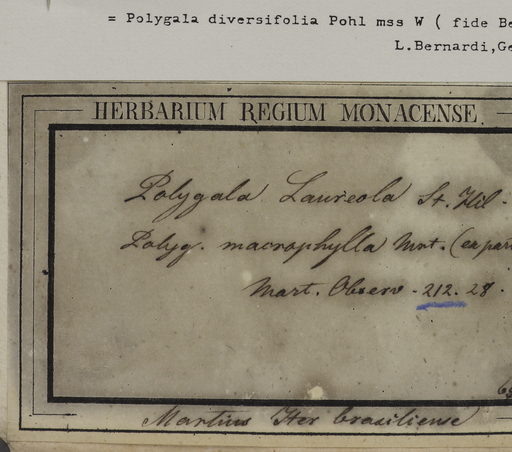 = Polygala diversifolia Pohl mss W ( fide Be
L.Bernardi,Ge
HERBARIUM REGIUM MONACENSE.
Polygala Laureola St. Hil.
Polyg. macrophylla Mrt. (ex par
Mart. Observ. 212. 28.
Martius Iter brasiliense